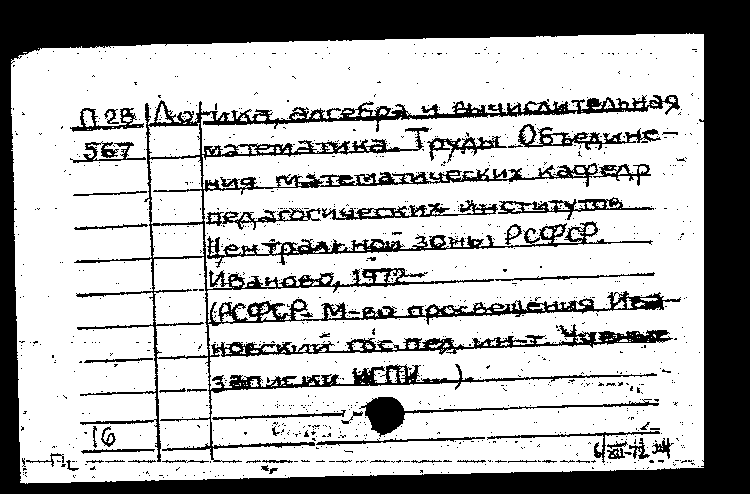 П 28 Логика, алгебра и вычислительная
567 математика. Труды Объедине-
ния математических кафедр
педагогических институтов
Центральной зоны РСФСР.
Иваново, 1972-
(РСФСР. М-во просвещения Ива-
новский гос. пед. ин-т. Ученые
записки ИГПИ...).
16